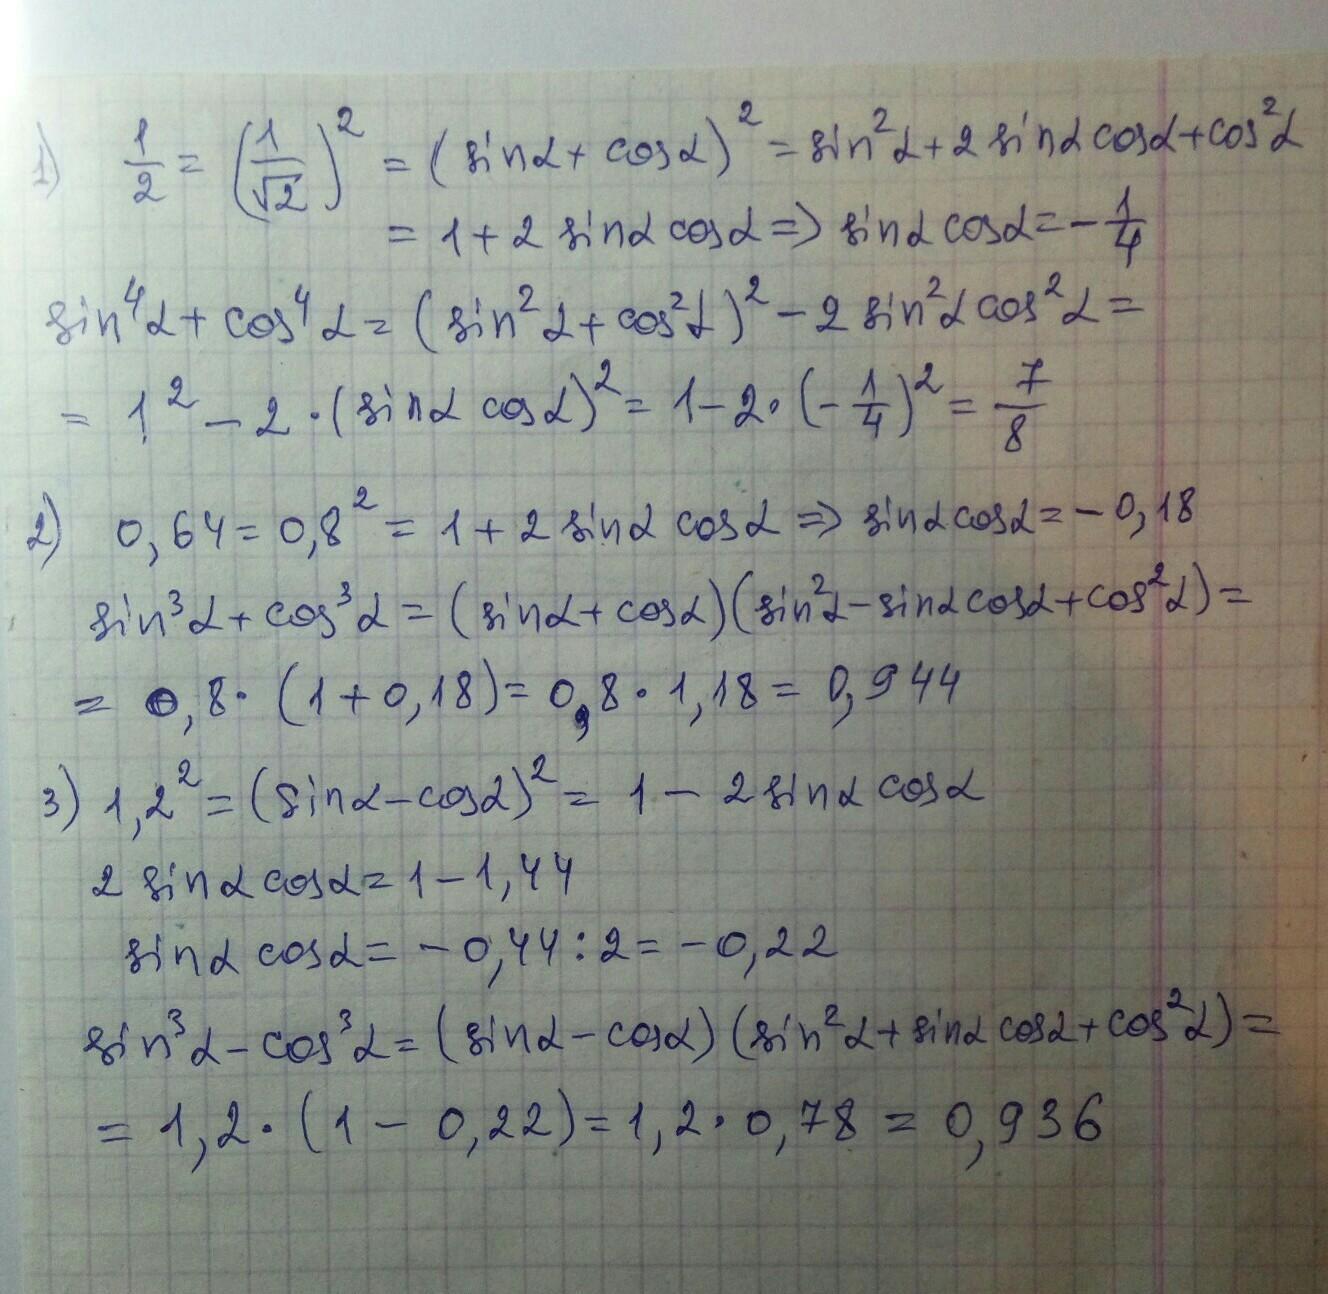 1) 1/2 = (1/√2)² = (sinα + cosα)² = sin²α + 2 sinα cosα + cos²α
= 1 + 2 sinα cosα => sinα cosα = -1/4
sin⁴α + cos⁴α = (sin²α + cos²α)² - 2 sin²α cos²α =
= 1² - 2 · (sinα cosα)² = 1 - 2 · (-1/4)² = 7/8
2) 0,64 = 0,8² = 1 + 2 sinα cosα => sinα cosα = -0,18
sin³α + cos³α = (sinα + cosα)(sin²α - sinα cosα + cos²α) =
= 0,8 · (1 + 0,18) = 0,8 · 1,18 = 0,944
3) 1,2² = (sinα - cosα)² = 1 - 2 sinα cosα
2 sinα cosα = 1 - 1,44
sinα cosα = -0,44 : 2 = -0,22
sin³α - cos³α = (sinα - cosα)(sin²α + sinα cosα + cos²α) =
= 1,2 · (1 - 0,22) = 1,2 · 0,78 = 0,936